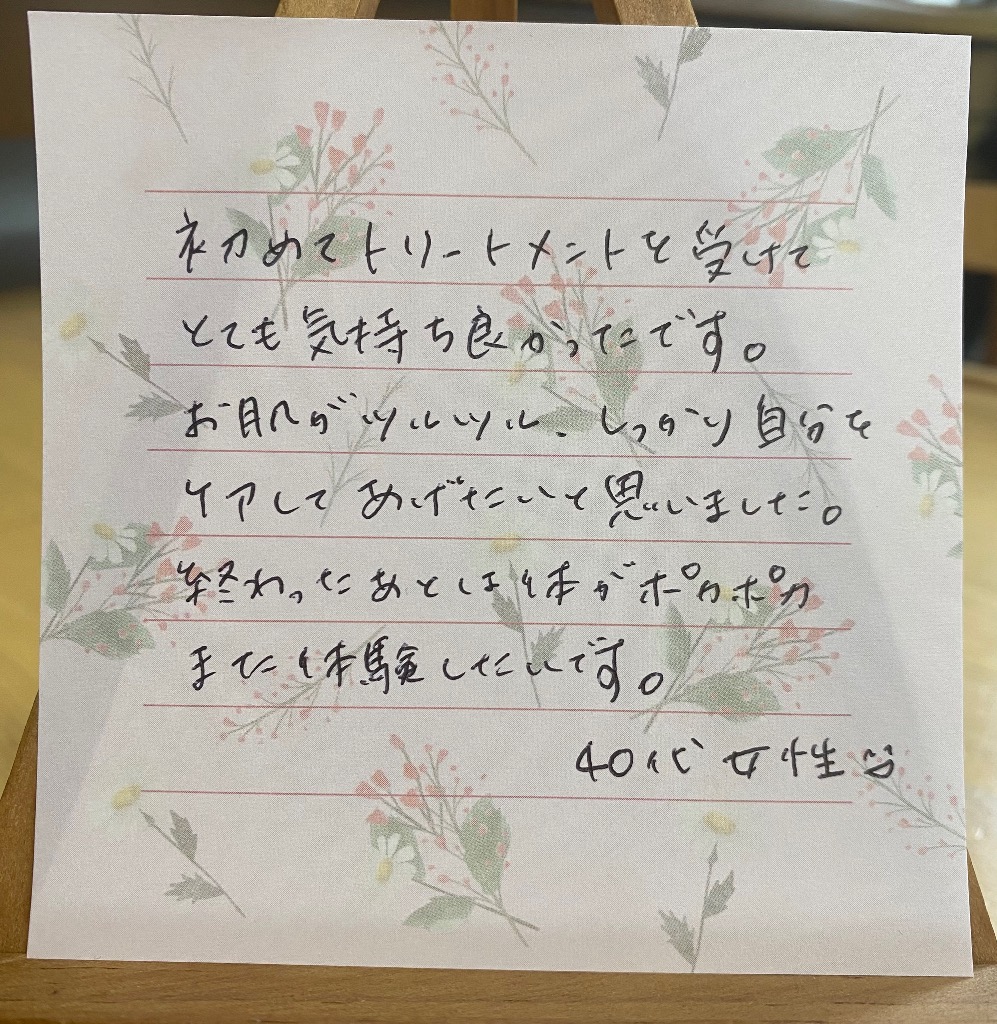 初めてトリートメントを受けて
とても気持ち良かったです。
お肌がツルツル、しっかり自分を
ケアしてあげたいと思いました。
終わったあとは体がポカポカ
また体験したいです。
40代 女性